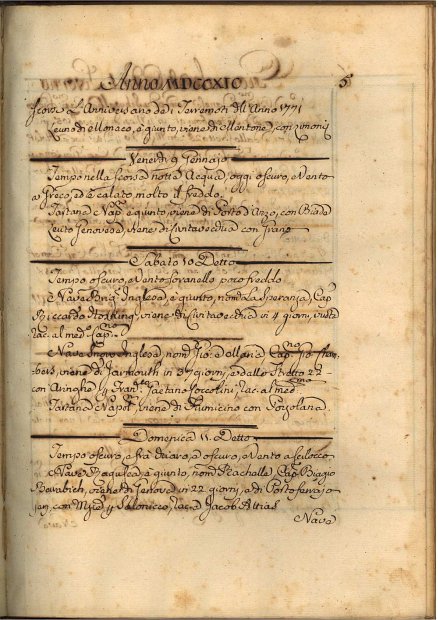 Anno MDCCXIC
5
scorse L'Anniversario de di Terremoti dell Anno 1741
Leuto di Monaco, è giunto, viene di Mentone, con Limoni
Venerdi 9 Gennajo
Tempo nella scorsa notte Acqua, oggi oscuro, e Vento
a Greco, ed è calato molto il freddo.
Tartana Nap.na è giunto, viene di Porto d'Anzo, con Biade
Leuto Genovese, viene di Civitavecchia con Grano
Sabato 10 Detto
Tempo oscuro, e Vento Sovanello poco freddo
Nave Inglesa, è giunto, nom.ta La Speranza, Cap.
Riccardo Hosking, viene di Civitavecchia in 4 giorni, vuota
rac. al med.o Cap.no
Nave Inglesa, nom. Gio. e Maria Cap.no Gio.
viene di Jarmouth in 37 giorni, e dallo Stretto 22
con Aringhe Gaetano rac. al med.mo
Tartana Napol.na viene di Fiumicino con Pozolana.
Domenica 11. Detto
Tempo oscuro, e frà chiaro, e oscuro, e Vento a Scilocco
Nave Ragusea, è giunto, nom. Cap. Biagio
viene di Genova in 22 giorni, e di Porto ferrajo
con Salonicco, rac. a Jacob Attias
Nave